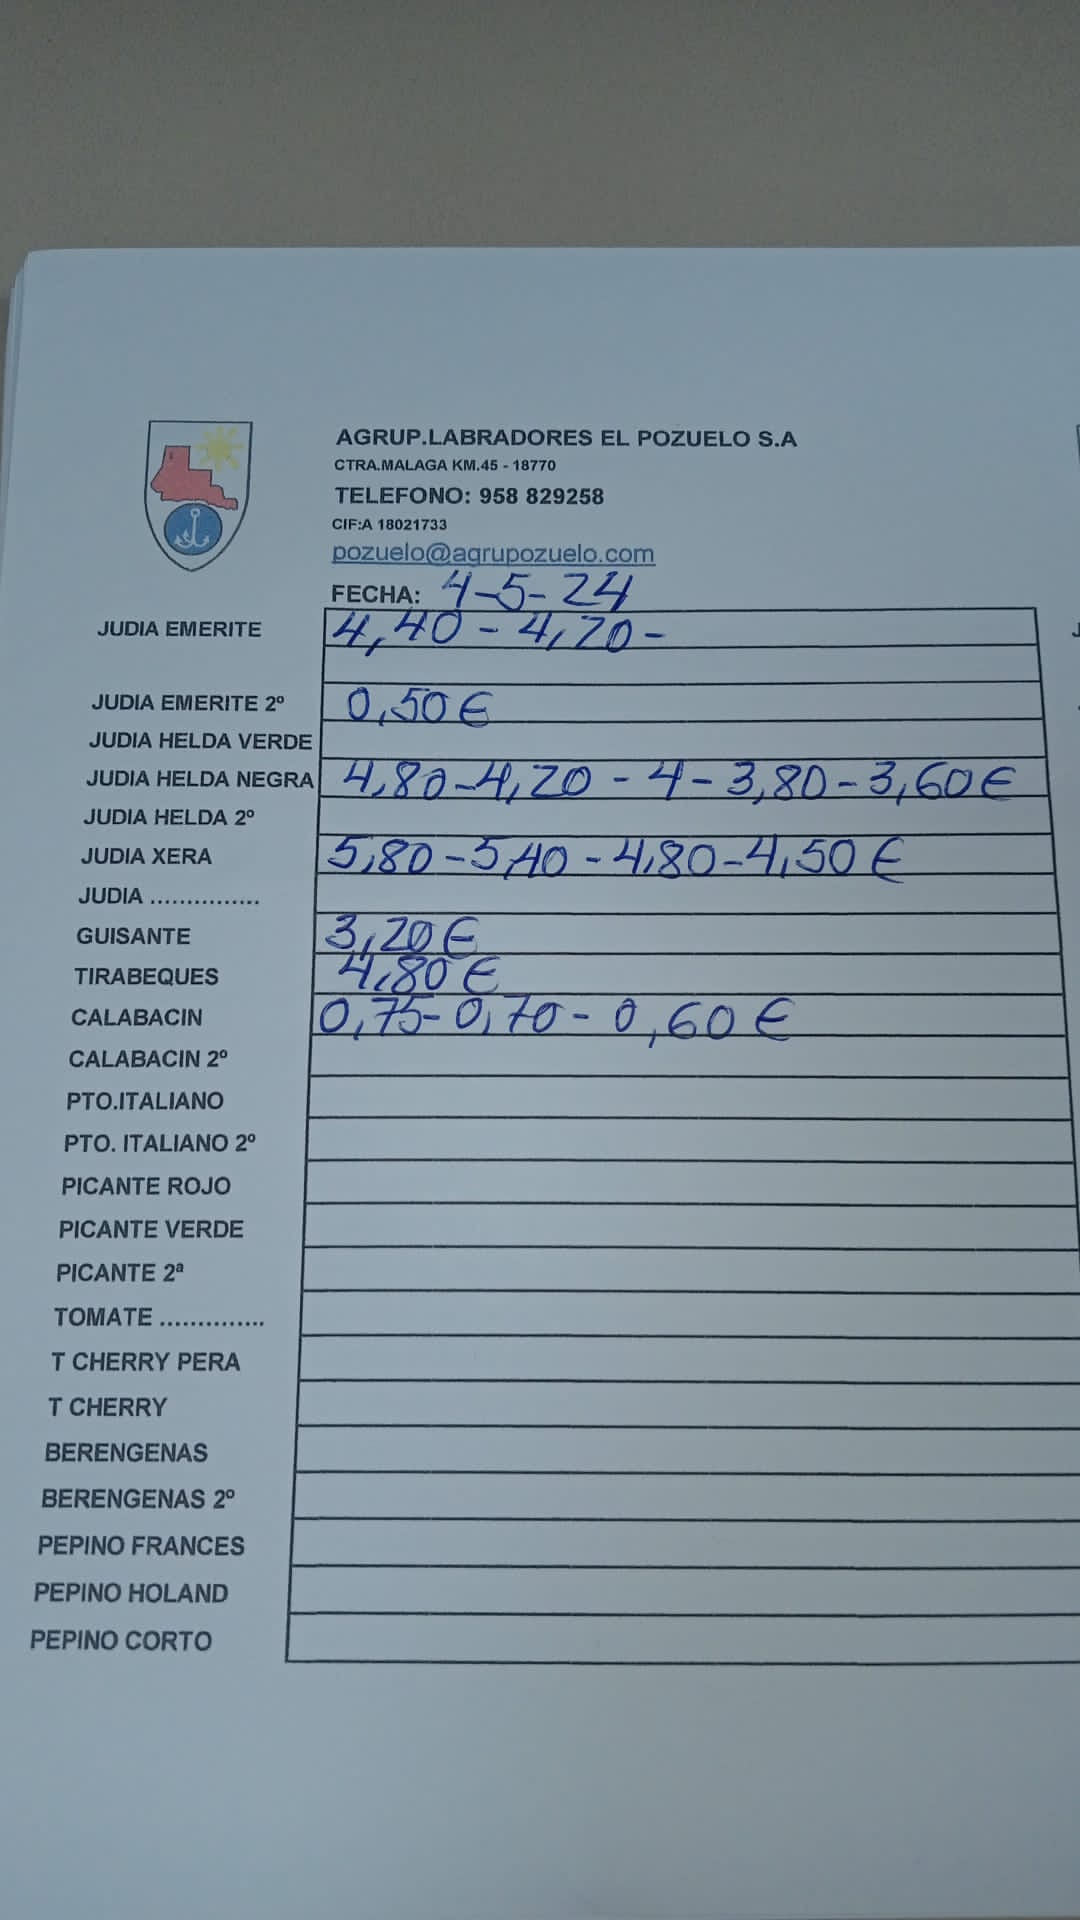 AGRUP.LABRADORES EL POZUELO S.A
CTRA.MALAGA KM.45 - 18770
TELEFONO: 958 829258
CIF:A 18021733
pozuelo@agrupozuelo.com
FECHA: 4-5-24
JUDIA EMERITE 4,40 - 4,20 -
JUDIA EMERITE 2º 0,50 €
JUDIA HELDA VERDE
JUDIA HELDA NEGRA 4,80 - 4,20 - 4 - 3,80 - 3,60 €
JUDIA HELDA 2º
JUDIA XERA 5,80 - 5,40 - 4,80 - 4,50 €
JUDIA ...............
GUISANTE 3,20 €
TIRABEQUES 4,80 €
CALABACIN 0,75 - 0,70 - 0,60 €
CALABACIN 2º
PTO.ITALIANO
PTO. ITALIANO 2º
PICANTE ROJO
PICANTE VERDE
PICANTE 2ª
TOMATE ..............
T CHERRY PERA
T CHERRY
BERENGENAS
BERENGENAS 2º
PEPINO FRANCES
PEPINO HOLAND
PEPINO CORTO